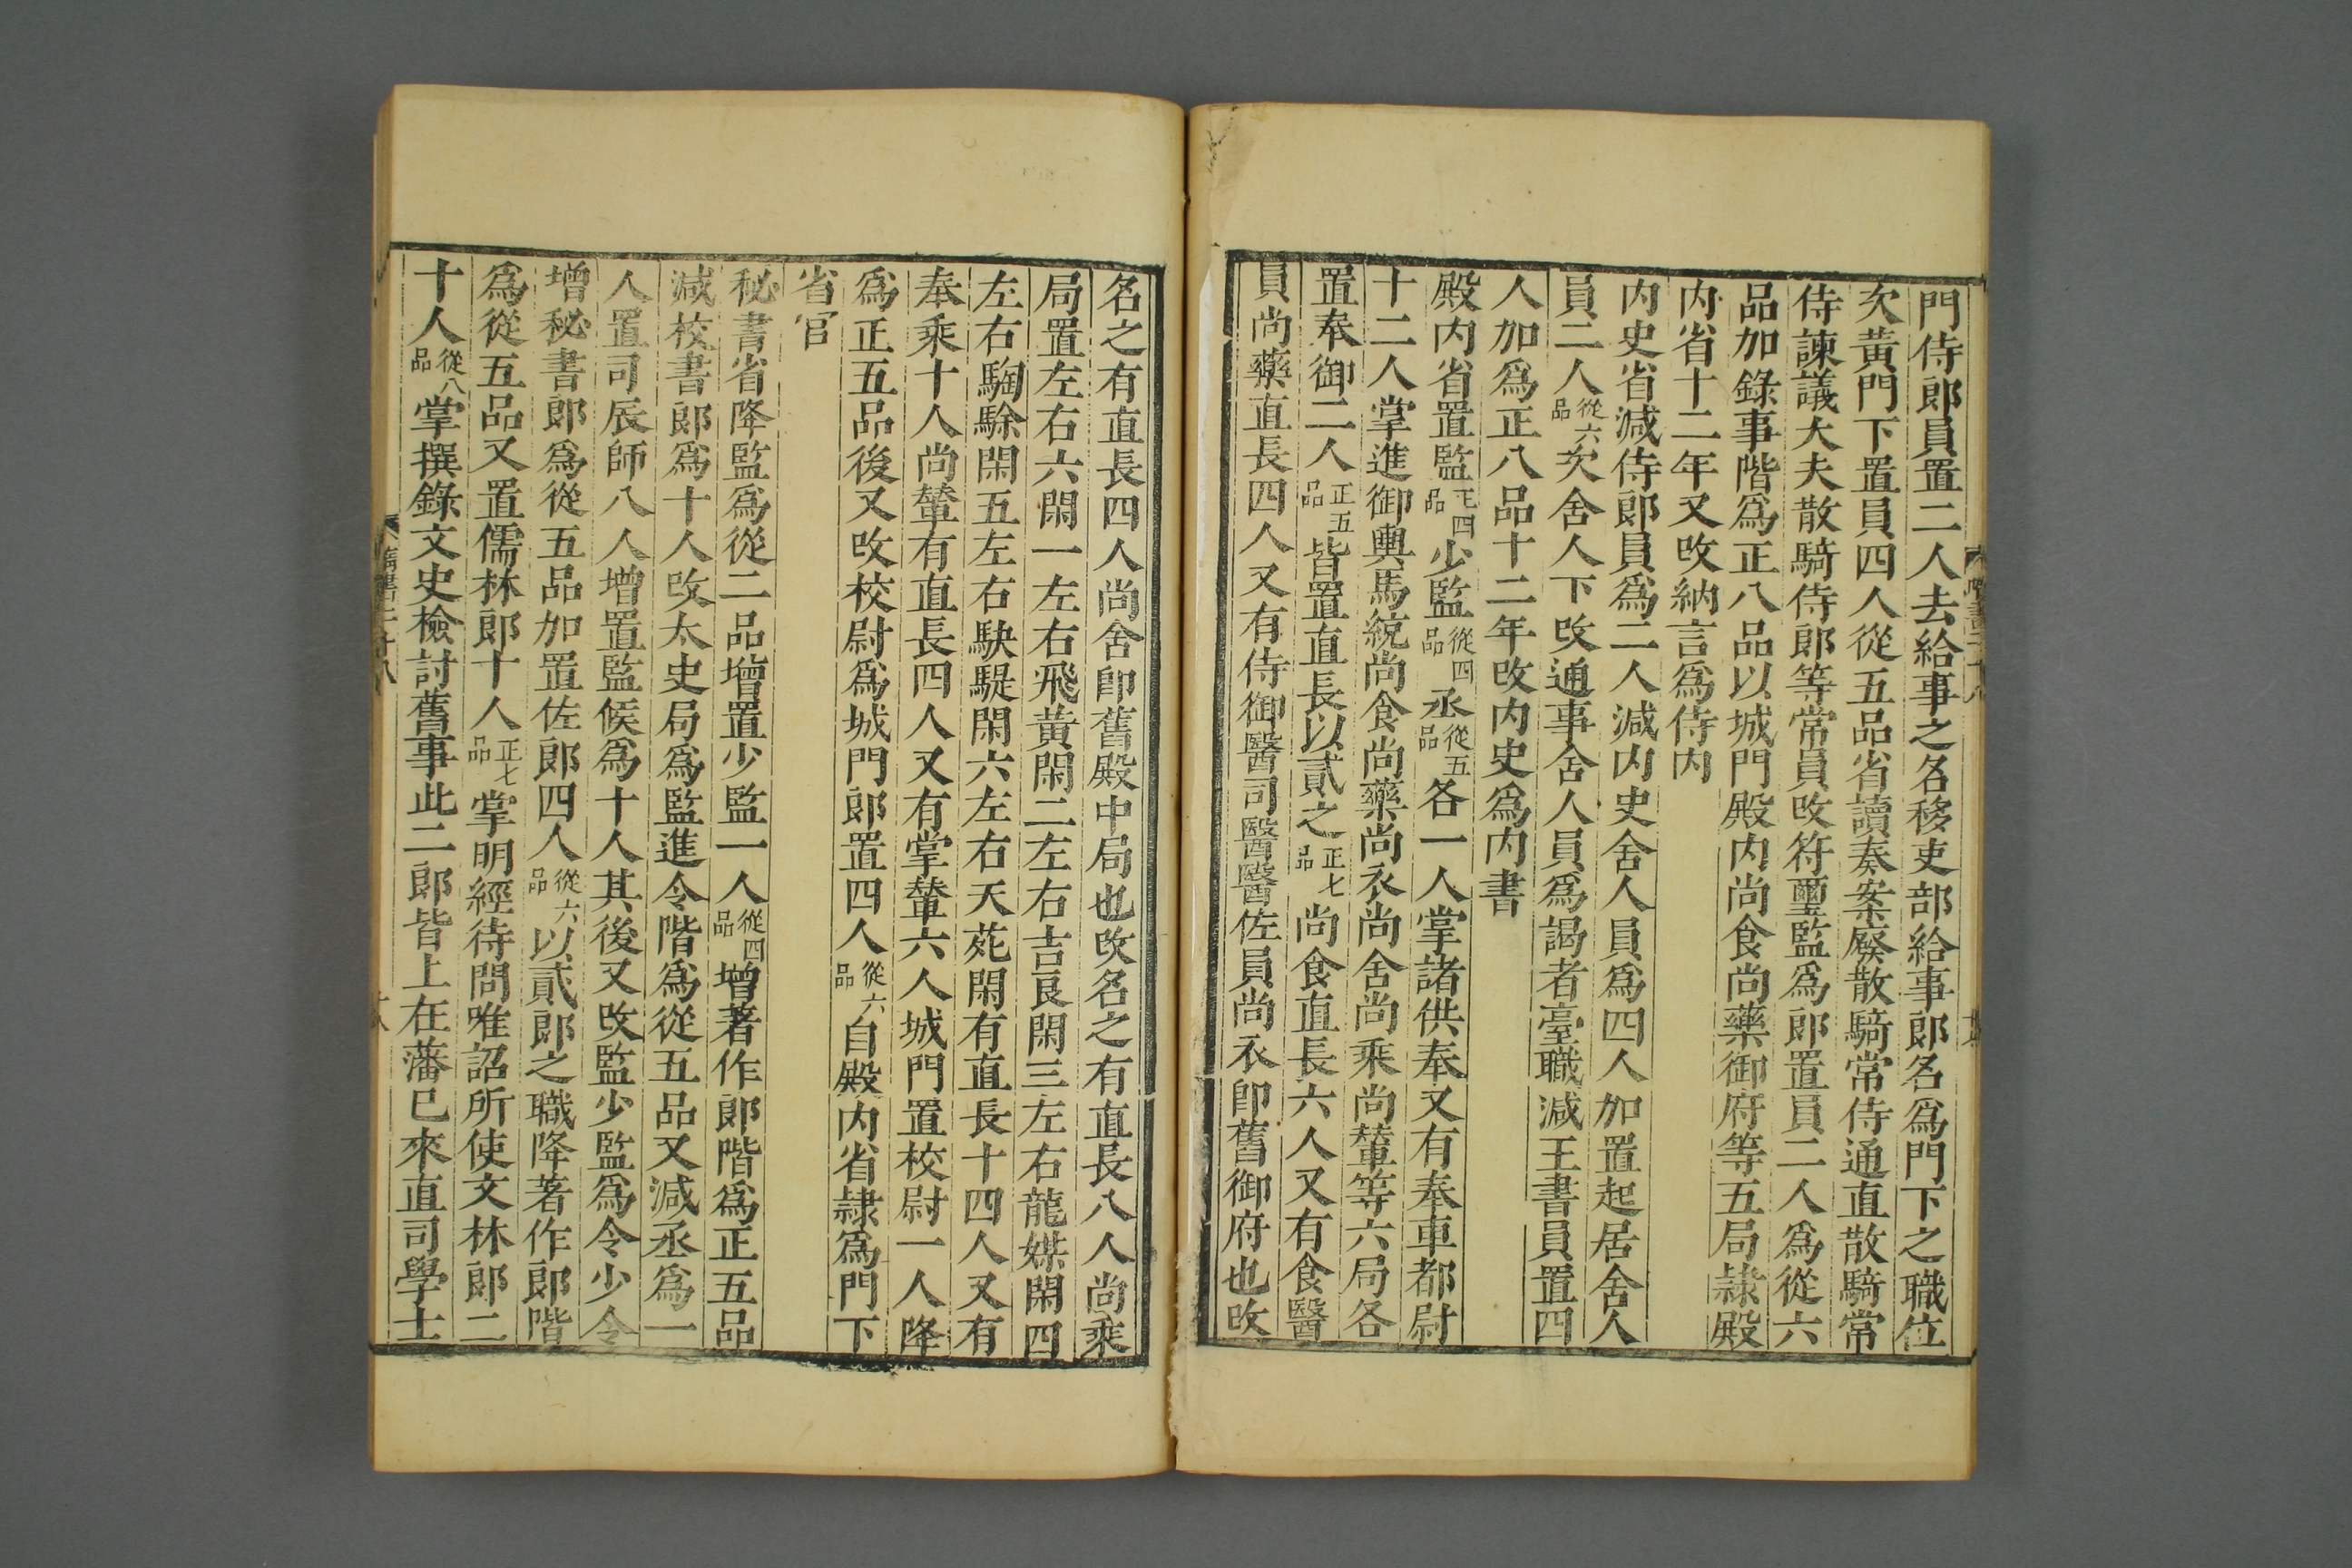 門侍郎員置二人去給事之名移吏部給事郎名爲門下之職位
次黃門下置員四人從五品省讀奏案廢散騎常侍通直散騎常
侍諫議大夫散騎侍郎等常員改符璽監爲郎置員二人爲從六
品加錄事階爲正八品以城門殿內尚食尚藥御府等五局隷殿
內省十二年又改納言爲侍內
內史省減侍郎員爲二人減內史舍人員爲四人加置起居舍人
員二人從六品次舍人下改通事舍人員爲謁者臺職減主書員置四
人加爲正八品十二年改內史爲內書
殿內省置監正四品少監從四品丞從五品各一人掌諸供奉又有奉車都尉
十二人掌進御輿馬統尚食尚藥尚衣尚舍尚乘尚輦等六局各
置奉御二人正五品皆置直長以貳之正七品尚食直長六人又有食醫
員尚藥直長四人又有侍御醫司醫醫佐員尚衣卽舊御府也改
名之有直長四人尚舍卽舊殿中局也改名之有直長八人尚乘
局置左右六閑一左右飛黃閑二左右吉良閑三左右龍媒閑四
左右騊駼閑五左右駃騠閑六左右天苑閑有直長十四人又有
奉乘十人尚輦有直長四人又有掌輦六人城門置校尉一人降
爲正五品後又改校尉爲城門郎置四人從六品自殿內省隷爲門下
省官
秘書省降監爲從二品增置少監一人從四品增著作郎階爲正五品
減校書郎爲十人改太史局爲監進令階爲從五品又減丞爲一
人置司辰師八人增置監候爲十人其後又改監少監爲令少令
增秘書郎爲從五品加置佐郎四人從六品以貳郎之職降著作郎階
爲從五品又置儒林郎十人正七品掌明經待問唯詔所使文林郎二
十人從八品掌撰錄文史檢討舊事此二郎皆上在藩已來直司學士
隋書二十八